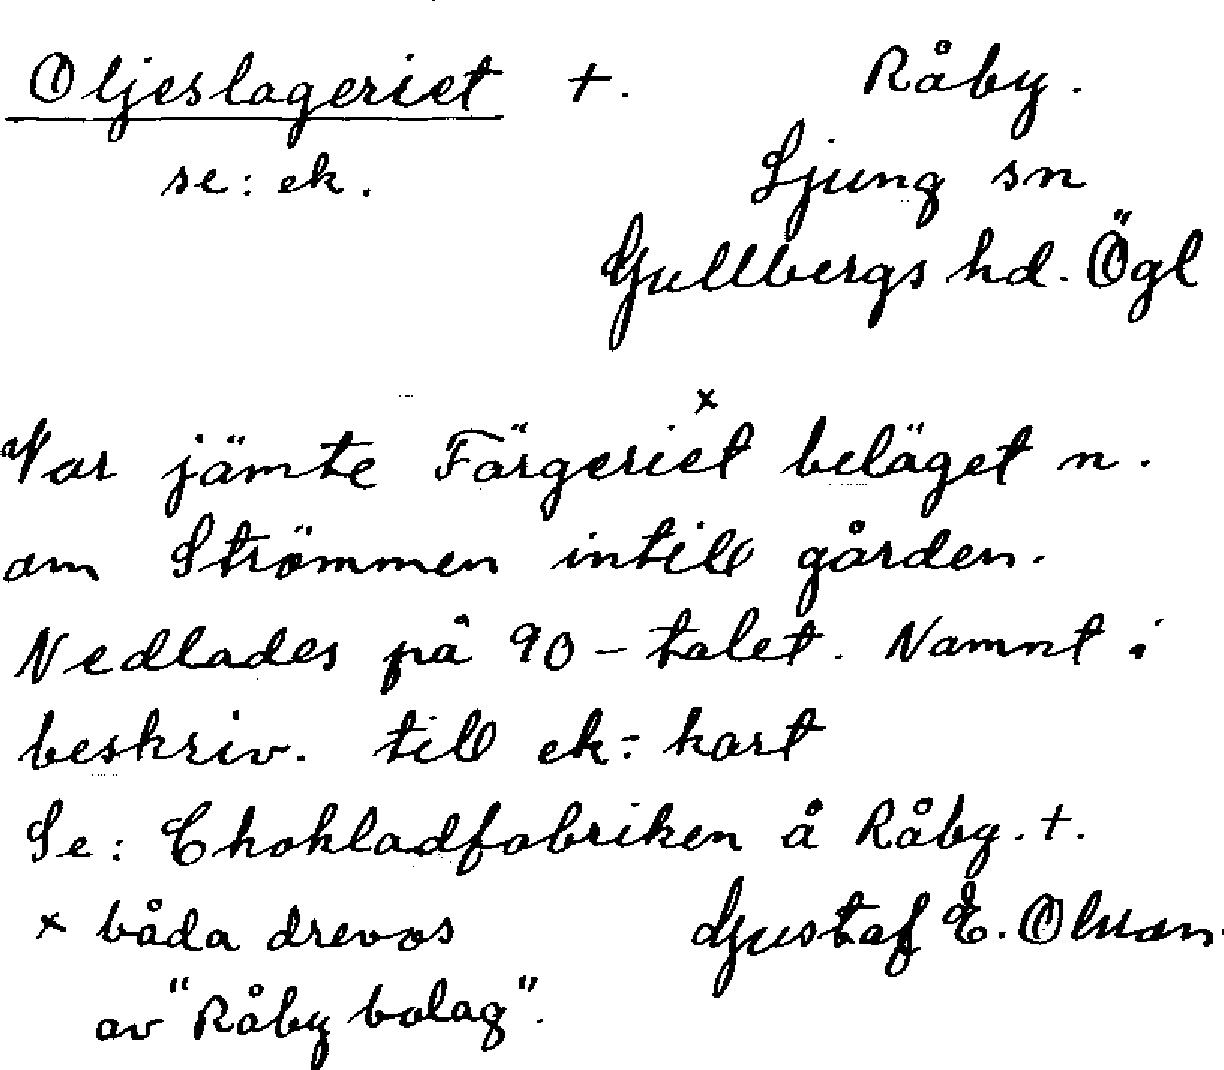 Oljeslageriet +. Råby.
se: ek. Ljung sn
Gullbergs hd. Ögl
Var jämte Färgeriet x beläget n.
om Strömmen intill gården.
Nedlades på 90-talet. Namnt i
beskriv. till ek: kart
Se: Chokladfabriken å Råby. +.
x båda drevos Gustaf E. Olsson.
av "Råby bolag".